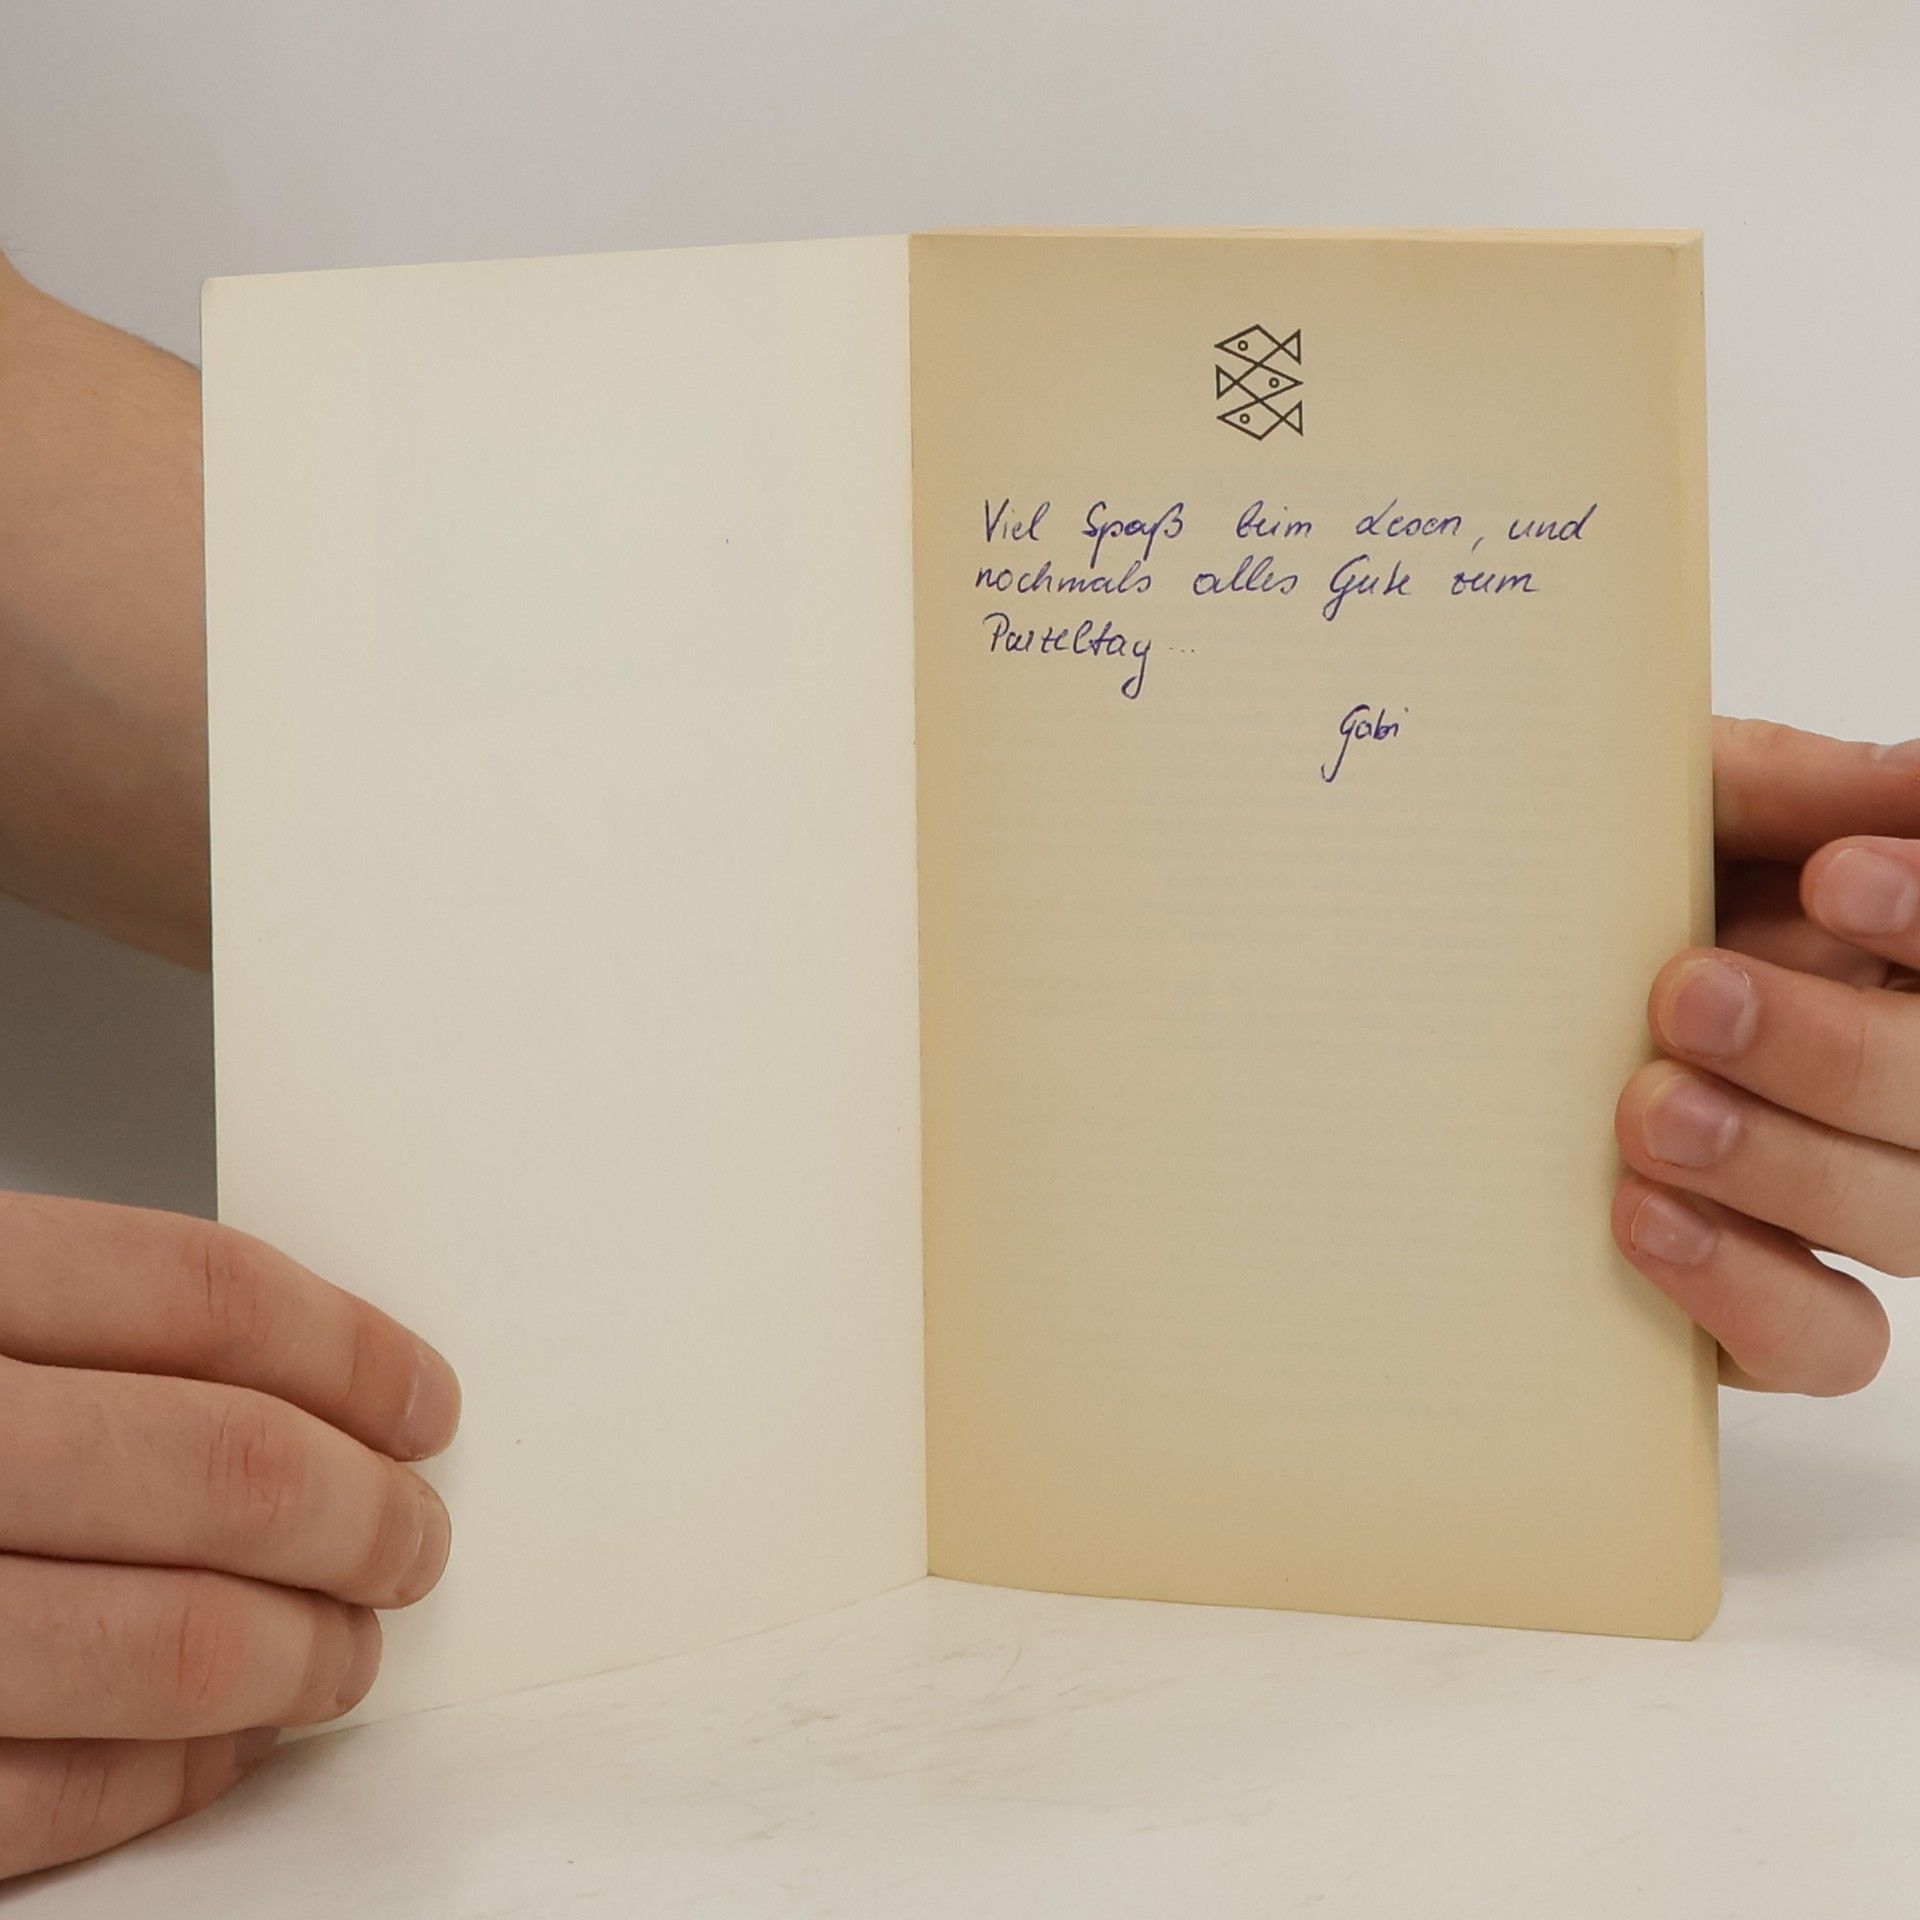 Viel Spaß beim Lesen, und
nochmals alles Gute zum
Purzeltag...
Gabi